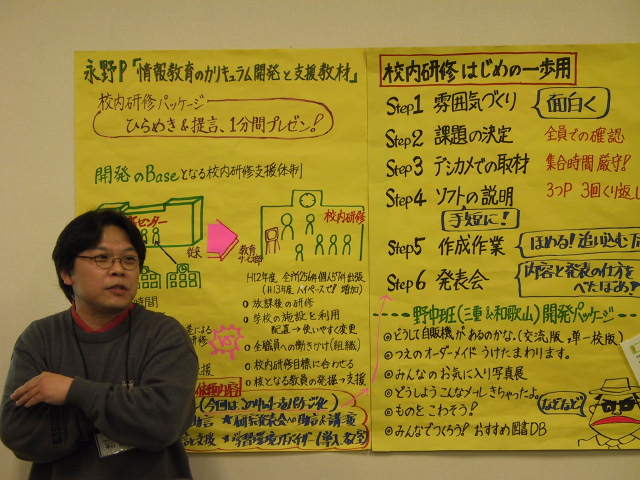 永野P「情報教育のカリキュラム開発と支援教材」
校内研修パッケージ
ひらめき&提言、1分間プレゼン!
開発のBaseとなる校内研修支援体制
センター
校内研修
教育
H12年度、
(H13年度ハイペースで増加)
放課後の研修
学校の施設を利用
配置→使いやすく変更
全職員への働きかけ(組織)
校内研修目標に合わせる
核となる教員の発掘→支援
時間
による
研修
支援
校内研修はじめの一歩用
Step1 雰囲気づくり 面白く
Step2 課題の決定 全員での確認
Step3 デジカメでの取材 集合時間厳守!
Step4 ソフトの説明 3つP 3回くり返し
手短に!
Step5 作成作業 ほめる!追い込む
Step6 発表会 内容と発表の仕方を
べたぼめ!
野中班(三重&和歌山)開発パッケージ
どうして自販機があるのかな。(交流版、単一校版)
つえのオーダーメイドうけたまわります。
みんなのお気に入り写真展
どうしようこんなメールきちゃったよ。
ものとこわそう!
みんなでつくろう!おすすめ図書DB
などなど